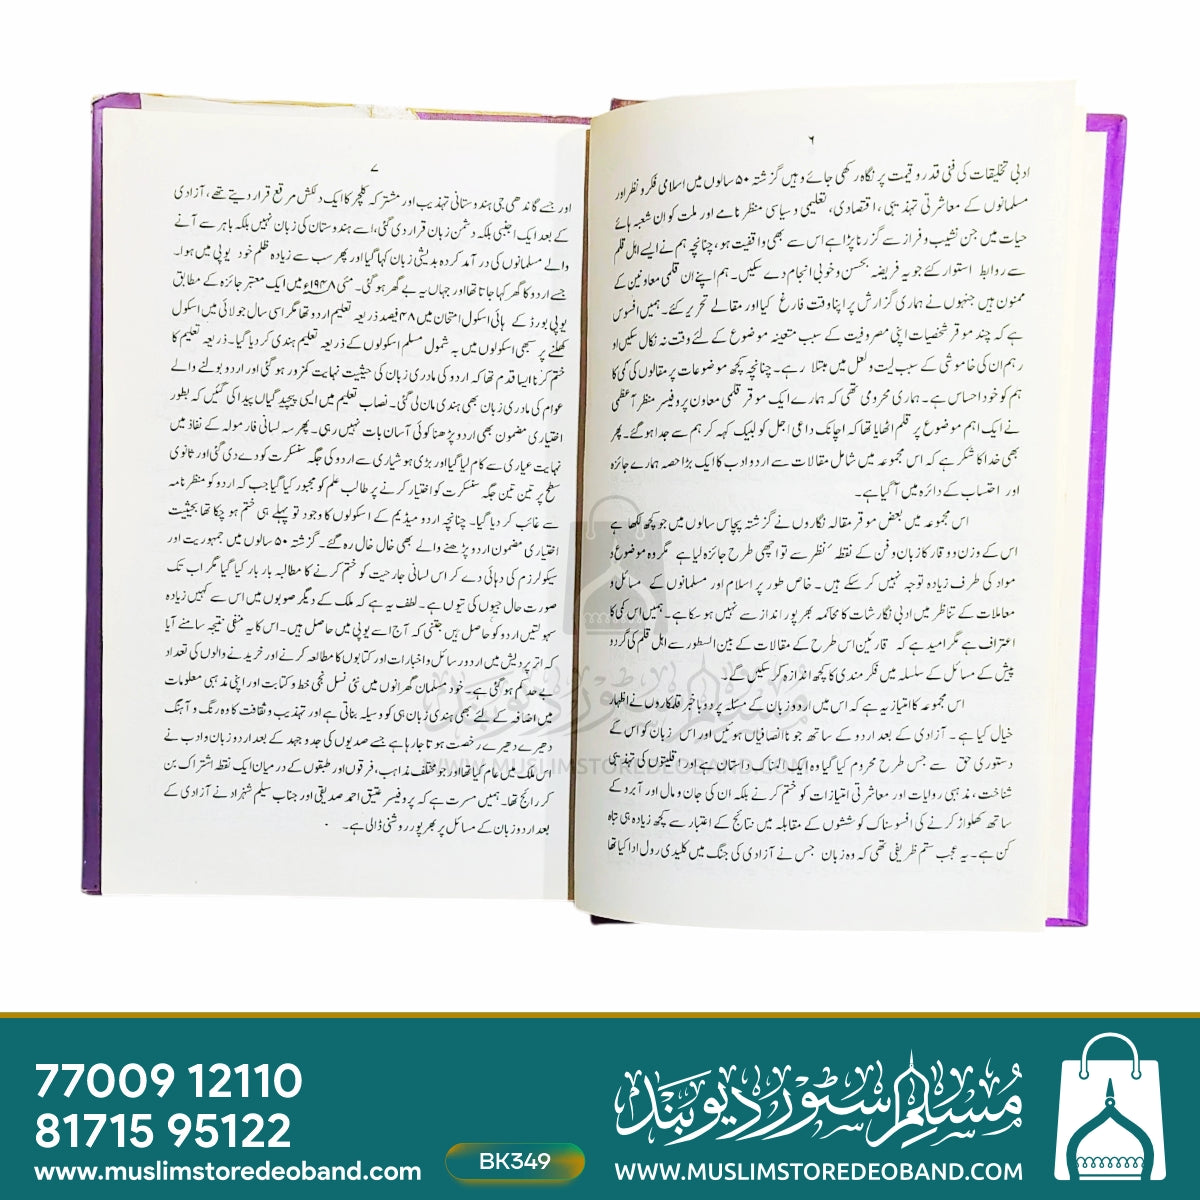 ۶
ادبی تخلیقات کی فنی قدر و قیمت پر نگاہ رکھی جائے وہیں گزشتہ ۵۰ سالوں میں اسلامی فکر و نظر اور
مسلمانوں کے معاشرتی تہذیبی، اقتصادی، تعلیمی و سیاسی منظر نامے اور ملت کو ان شعبہ ہائے
حیات میں جن نشیب و فراز سے گزرنا پڑا ہے اس سے بھی واقفیت ہو، چنانچہ ہم نے ایسے اہل قلم
سے روابط استوار کئے جو یہ فریضہ بحسن و خوبی انجام دے سکیں۔ ہم اپنے ان قلمی معاونین کے
ممنون ہیں جنہوں نے ہماری گزارش پر اپنا وقت فارغ کیا اور مقالے تحریر کئے۔ ہمیں افسوس
ہے کہ چند موقر شخصیات اپنی مصروفیت کے سبب متعینہ موضوع کے لئے وقت نہ نکال سکیں او
رہم ان کی خاموشی کے سبب لیت و لعل میں مبتلا رہے۔ چنانچہ کچھ موضوعات پر مقالوں کی کمی کا
ہم کو خود احساس ہے۔ ہماری محرومی تھی کہ ہمارے ایک موقر قلمی معاون پروفیسر منظر آعظمی
نے ایک اہم موضوع پر قلم اٹھایا تھا کہ اچانک داعی اجل کو لبیک کہہ کر ہم سے جدا ہو گئے۔ پھر
بھی خدا کا شکر ہے کہ اس مجموعہ میں شامل مقالات سے اردو ادب کا ایک بڑا حصہ ہمارے جائزہ
اور احتساب کے دائرہ میں آ گیا ہے۔
اس مجموعہ میں بعض موقر مقالہ نگاروں نے گزشتہ پچاس سالوں میں جو کچھ لکھا ہے
اس کے وزن و وقار کا زبان و فن کے نقطہ ٔ نظر سے تو اچھی طرح جائزہ لیا ہے مگر وہ موضوع و
مواد کی طرف زیادہ توجہ نہیں کر سکے ہیں ۔ خاص طور پر اسلام اور مسلمانوں کے مسائل و
معاملات کے تناظر میں ادبی نگارشات کا محاکمہ بھرپور انداز سے نہیں ہو سکا ہے۔ ہمیں اس کمی کا
اعتراف ہے مگر امید ہے کہ قارئین اس طرح کے مقالات کے بین السطور سے اہل قلم کی گرد و
پیش کے مسائل کے سلسلہ میں فکر مندی کا کچھ اندازہ کر سکیں گے۔
اس مجموعہ کا امتیاز یہ ہے کہ اس میں اردو زبان کے مسئلہ پر دو باخبر قلمکاروں نے اظہار
خیال کیا ہے۔ آزادی کے بعد اردو کے ساتھ جو نا انصافیاں ہوئیں اور اس زبان کو اس کے
دستوری حق سے جس طرح محروم کیا گیا وہ ایک المناک داستان ہے اور اقلیتوں کی تہذیبی
شناخت، مذہبی روایات اور معاشرتی امتیازات کو ختم کرنے بلکہ ان کی جان و مال اور آبرو کے
ساتھ کھلواڑ کرنے کی افسوسناک کوششوں کے مقابلہ میں نتائج کے اعتبار سے کچھ زیادہ ہی تباہ
کن ہے۔ یہ عجب ستم ظریفی تھی کہ وہ زبان جس نے آزادی کی جنگ میں کلیدی رول ادا کیا تھا
۷
اور جسے گاندھی جی ہندوستانی تہذیب اور مشترکہ کلچر کا ایک دلکش مرقع قرار دیتے تھے، آزادی
کے بعد ایک اجنبی بلکہ دشمن زبان قرار دی گئی، اسے ہندوستان کی زبان نہیں بلکہ باہر سے آنے
والے مسلمانوں کی در آمد کردہ بدیشی زبان کہا گیا اور پھر سب سے زیادہ ظلم خود یوپی میں ہوا۔
جسے اردو کا گھر کہا جاتا تھا اور جہاں یہ بے گھر ہو گئی۔ مئی ۱۹۴۸ء میں ایک معتبر جائزہ کے مطابق
یوپی بورڈ کے ہائی اسکول امتحان میں ۴۸ فیصد ذریعہ تعلیم اردو تھا مگر اسی سال جولائی میں اسکول
کھلنے پر سبھی اسکولوں میں بہ شمول مسلم اسکولوں کے ذریعہ تعلیم ہندی کر دیا گیا۔ ذریعہ تعلیم کا
ختم کرنا ایسا قدم تھا کہ اردو کی مادری زبان کی حیثیت نہایت کمزور ہو گئی اور اردو بولنے والے
عوام کی مادری زبان بھی ہندی مان لی گئی۔ نصاب تعلیم میں ایسی پیچیدگیاں پیدا کی گئیں کہ بطور
اختیاری مضمون بھی اردو پڑھنا کوئی آسان بات نہیں رہی۔ پھر سہ لسانی فارمولہ کے نفاذ میں
نہایت عیاری سے کام لیا گیا اور بڑی ہوشیاری سے اردو کی جگہ سنسکرت کو دے دی گئی اور ثانوی
سطح پر تین تین جگہ سنسکرت کو اختیار کرنے پر طالب علم کو مجبور کیا گیا جب کہ اردو کو منظر نامہ
سے غائب کر دیا گیا۔ چنانچہ اردو میڈیم کے اسکولوں کا وجود تو پہلے ہی ختم ہو چکا تھا بحیثیت
اختیاری مضمون اردو پڑھنے والے بھی خال خال رہ گئے۔ گزشتہ ۵۰ سالوں میں جمہوریت اور
سیکولرزم کی دہائی دے کر اس لسانی جارحیت کو ختم کرنے کا مطالبہ بار بار کیا گیا مگر اب تک
صورت حال جیوں کی تیوں ہے۔ لطف یہ ہے کہ ملک کے دیگر صوبوں میں اس سے کہیں زیادہ
سہولتیں اردو کو حاصل ہیں جتنی کہ آج اسے یوپی میں حاصل ہیں۔ اس کا یہ منفی نتیجہ سامنے آیا
کہ اتر پردیش میں اردو رسائل و اخبارات اور کتابوں کا مطالعہ کرنے اور خریدنے والوں کی تعداد
بے حد کم ہو گئی ہے۔ خود مسلمان گھرانوں میں نئی نسل نجی خط و کتابت اور اپنی مذہبی معلومات
میں اضافہ کے لئے بھی ہندی زبان ہی کو وسیلہ بناتی ہے اور تہذیب و ثقافت کا وہ رنگ و آہنگ
دھیرے دھیرے رخصت ہوتا جا رہا ہے جسے صدیوں کی جد و جہد کے بعد اردو زبان و ادب نے
اس ملک میں عام کیا تھا اور جو مختلف مذاہب، فرقوں اور طبقوں کے درمیان ایک نقطہ اشتراک بن
کر رائج تھا۔ ہمیں مسرت ہے کہ پروفیسر عتیق احمد صدیقی اور جناب سلیم شہزاد نے آزادی کے
بعد اردو زبان کے مسائل پر بھرپور روشنی ڈالی ہے۔
مسلم سٹور دیوبند
WWW.MUSLIMSTOREDEOBAND.COM
77009 12110
81715 95122
www.muslimstoredeoband.com
BK349
مسلم سٹور دیوبند
WWW.MUSLIMSTOREDEOBAND.COM